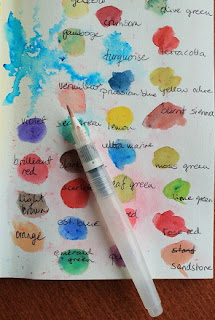 yellow
olive green
crimson
gamboge
turquoise
terracotta
vermilion
prussian blue
yellow olive
burnt sienna
violet
lemon
ultra marine
brilliant
red
moss green
scarlet
leaf green
lime green
light
brown
ash blue
red
rose red
orange
emerald
green
sandstone